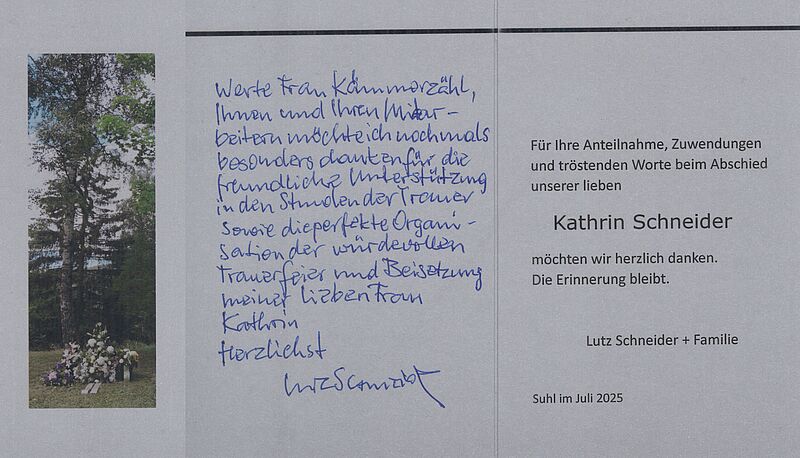 Werte Frau Kämmerzähl,
Ihnen und Ihren Mitar-
beitern möchte ich nochmals
besonders danken für die
freundliche Unterstützung
in den Stunden der Trauer
sowie die perfekte Organi-
sation der würdevollen
Trauerfeier und Beisetzung
meiner lieben Frau
Kathrin
Herzlichst
Für Ihre Anteilnahme, Zuwendungen
und tröstenden Worte beim Abschied
unserer lieben
Kathrin Schneider
möchten wir herzlich danken.
Die Erinnerung bleibt.
Lutz Schneider + Familie
Suhl im Juli 2025